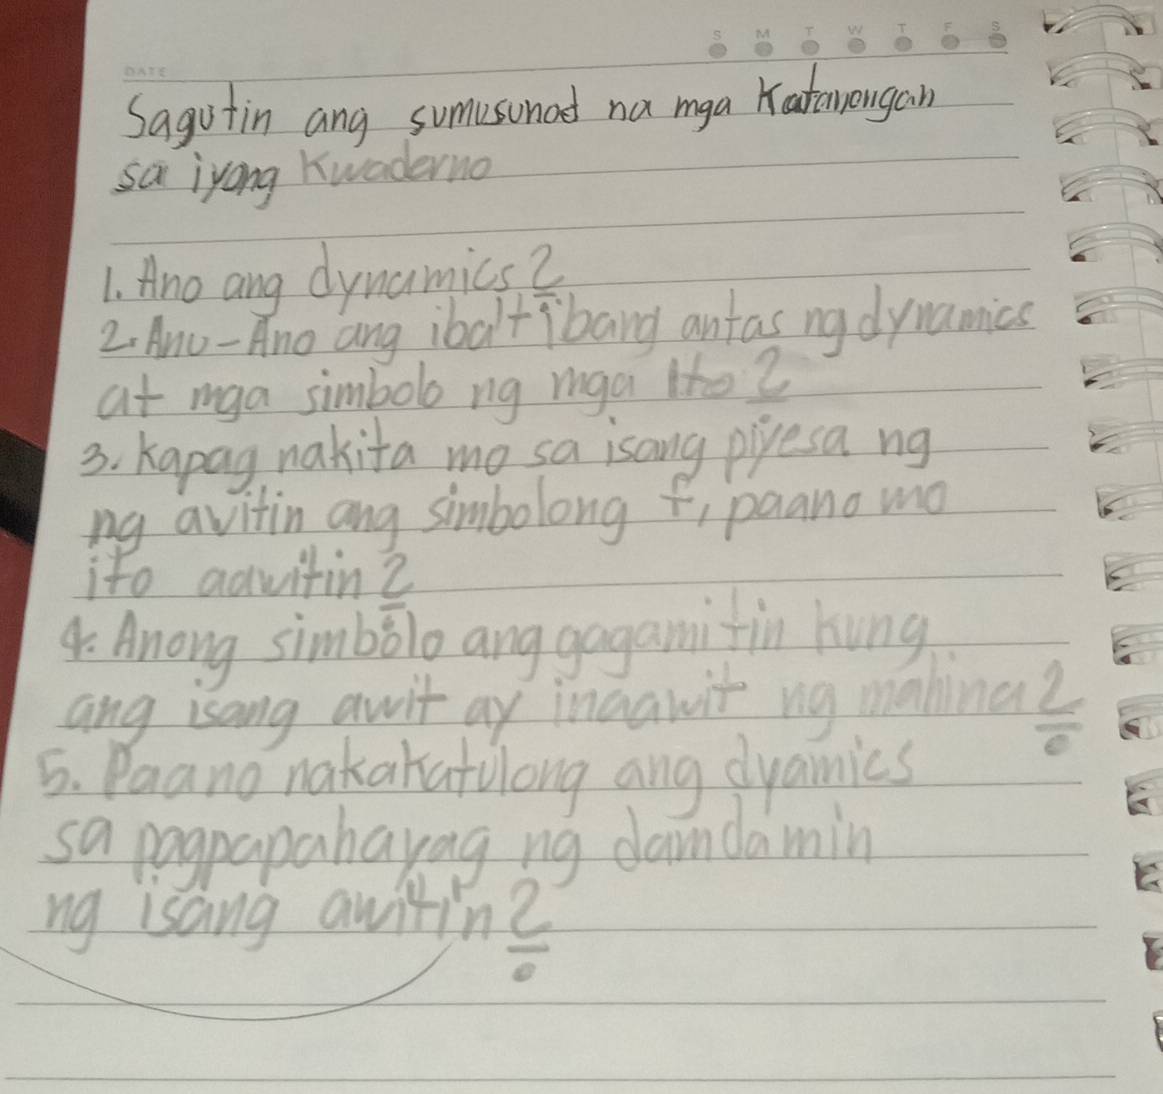 S M T W T F S
DATE
Sagutin ang sumusunod na mga Katanongan
sa iyong Kwaderno
1. Ano ang dynamics?
2. Anu-Ano ang iba't ibang antas ng dynamics
at mga simbolo ng mga ito?
3. Kapag nakita mo sa isang piyesa ng
ng awitin ang simbolong f, paano mo
ito aawitin?
4. Anong simbolo ang gagamitin kung
ang isang awit ay inaawit ng mahina?
5. Paano nakakatulong ang dyamics
sa pagpapahayag ng damdamin
ng isang awitin?